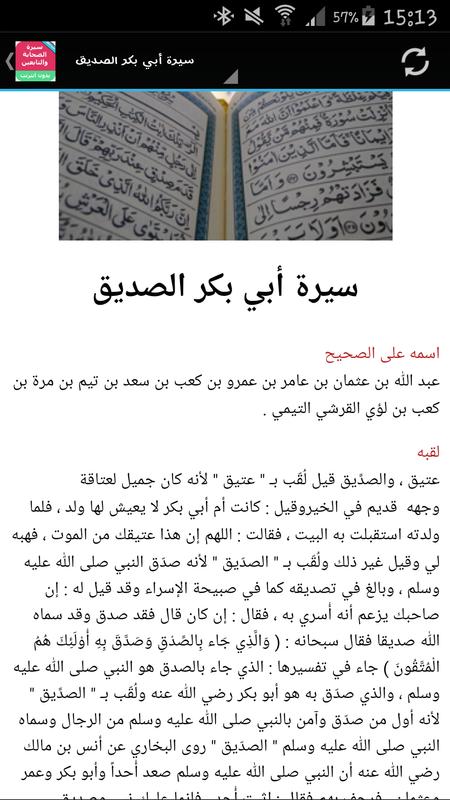 57% 15:13
سيرة
الصحابة
والتابعين
بدون انترنت
سيرة أبي بكر الصديق
سيرة أبي بكر الصديق
اسمه على الصحيح
عبد الله بن عثمان بن عامر بن عمرو بن كعب بن سعد بن تيم بن مرة بن
كعب بن لؤي القرشي التيمي .
لقبه
عتيق ، والصدِّيق قيل لُقّب بـ " عتيق " لأنه كان جميل لعتاقة
وجهه قديم في الخيروقيل : كانت أم أبي بكر لا يعيش لها ولد ، فلما
ولدته استقبلت به البيت ، فقالت : اللهم إن هذا عتيقك من الموت ، فهبه
لي وقيل غير ذلك ولُقّب بـ " الصدّيق " لأنه صدّق النبي صلى الله عليه
وسلم ، وبالغ في تصديقه كما في صبيحة الإسراء وقد قيل له : إن
صاحبك يزعم أنه أسري به ، فقال : إن كان قال فقد صدق وقد سماه
الله صديقا فقال سبحانه : ( وَالَّذِي جَاء بِالصِّدْقِ وَصَدَّقَ بِهِ أُوْلَئِكَ هُمُ
الْمُتَّقُونَ ) جاء في تفسيرها : الذي جاء بالصدق هو النبي صلى الله عليه
وسلم ، والذي صدّق به هو أبو بكر رضي الله عنه ولُقّب بـ " الصدِّيق "
لأنه أول من صدّق وآمن بالنبي صلى الله عليه وسلم من الرجال وسماه
النبي صلى الله عليه وسلم " الصدّيق " روى البخاري عن أنس بن مالك
رضي الله عنه أن النبي صلى الله عليه وسلم صعد أحداً وأبو بكر وعمر